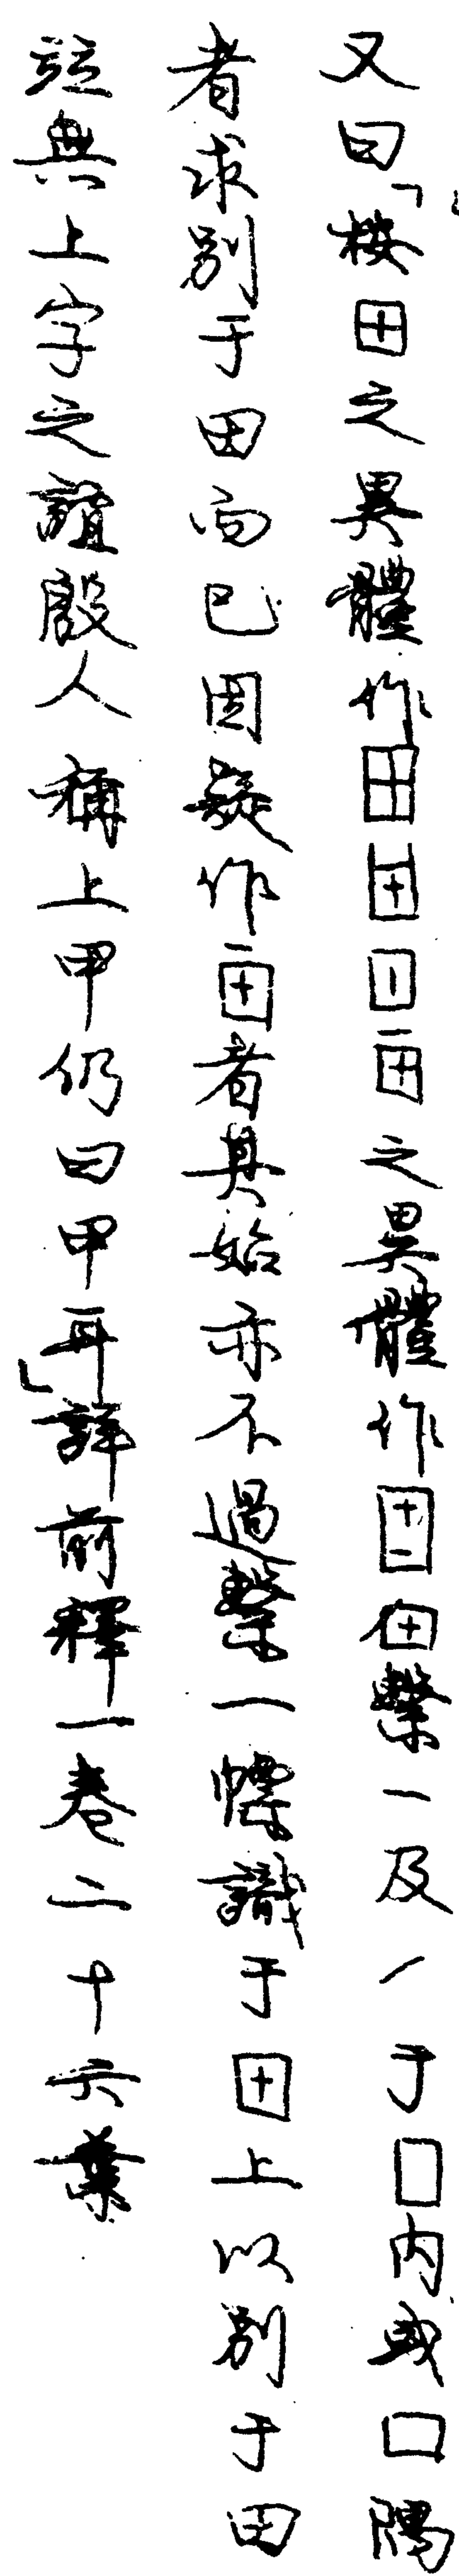 又曰「按田之異體作田𠙹囗𤰔之異體作囗繫一及/于囗內或囗隅
者求別于田而已因疑作𤰔者其始亦不過繫一幖識于田上以別于田
竝無上字之誼殷人稱上甲仍曰甲耳」詳前釋一卷二十六葉